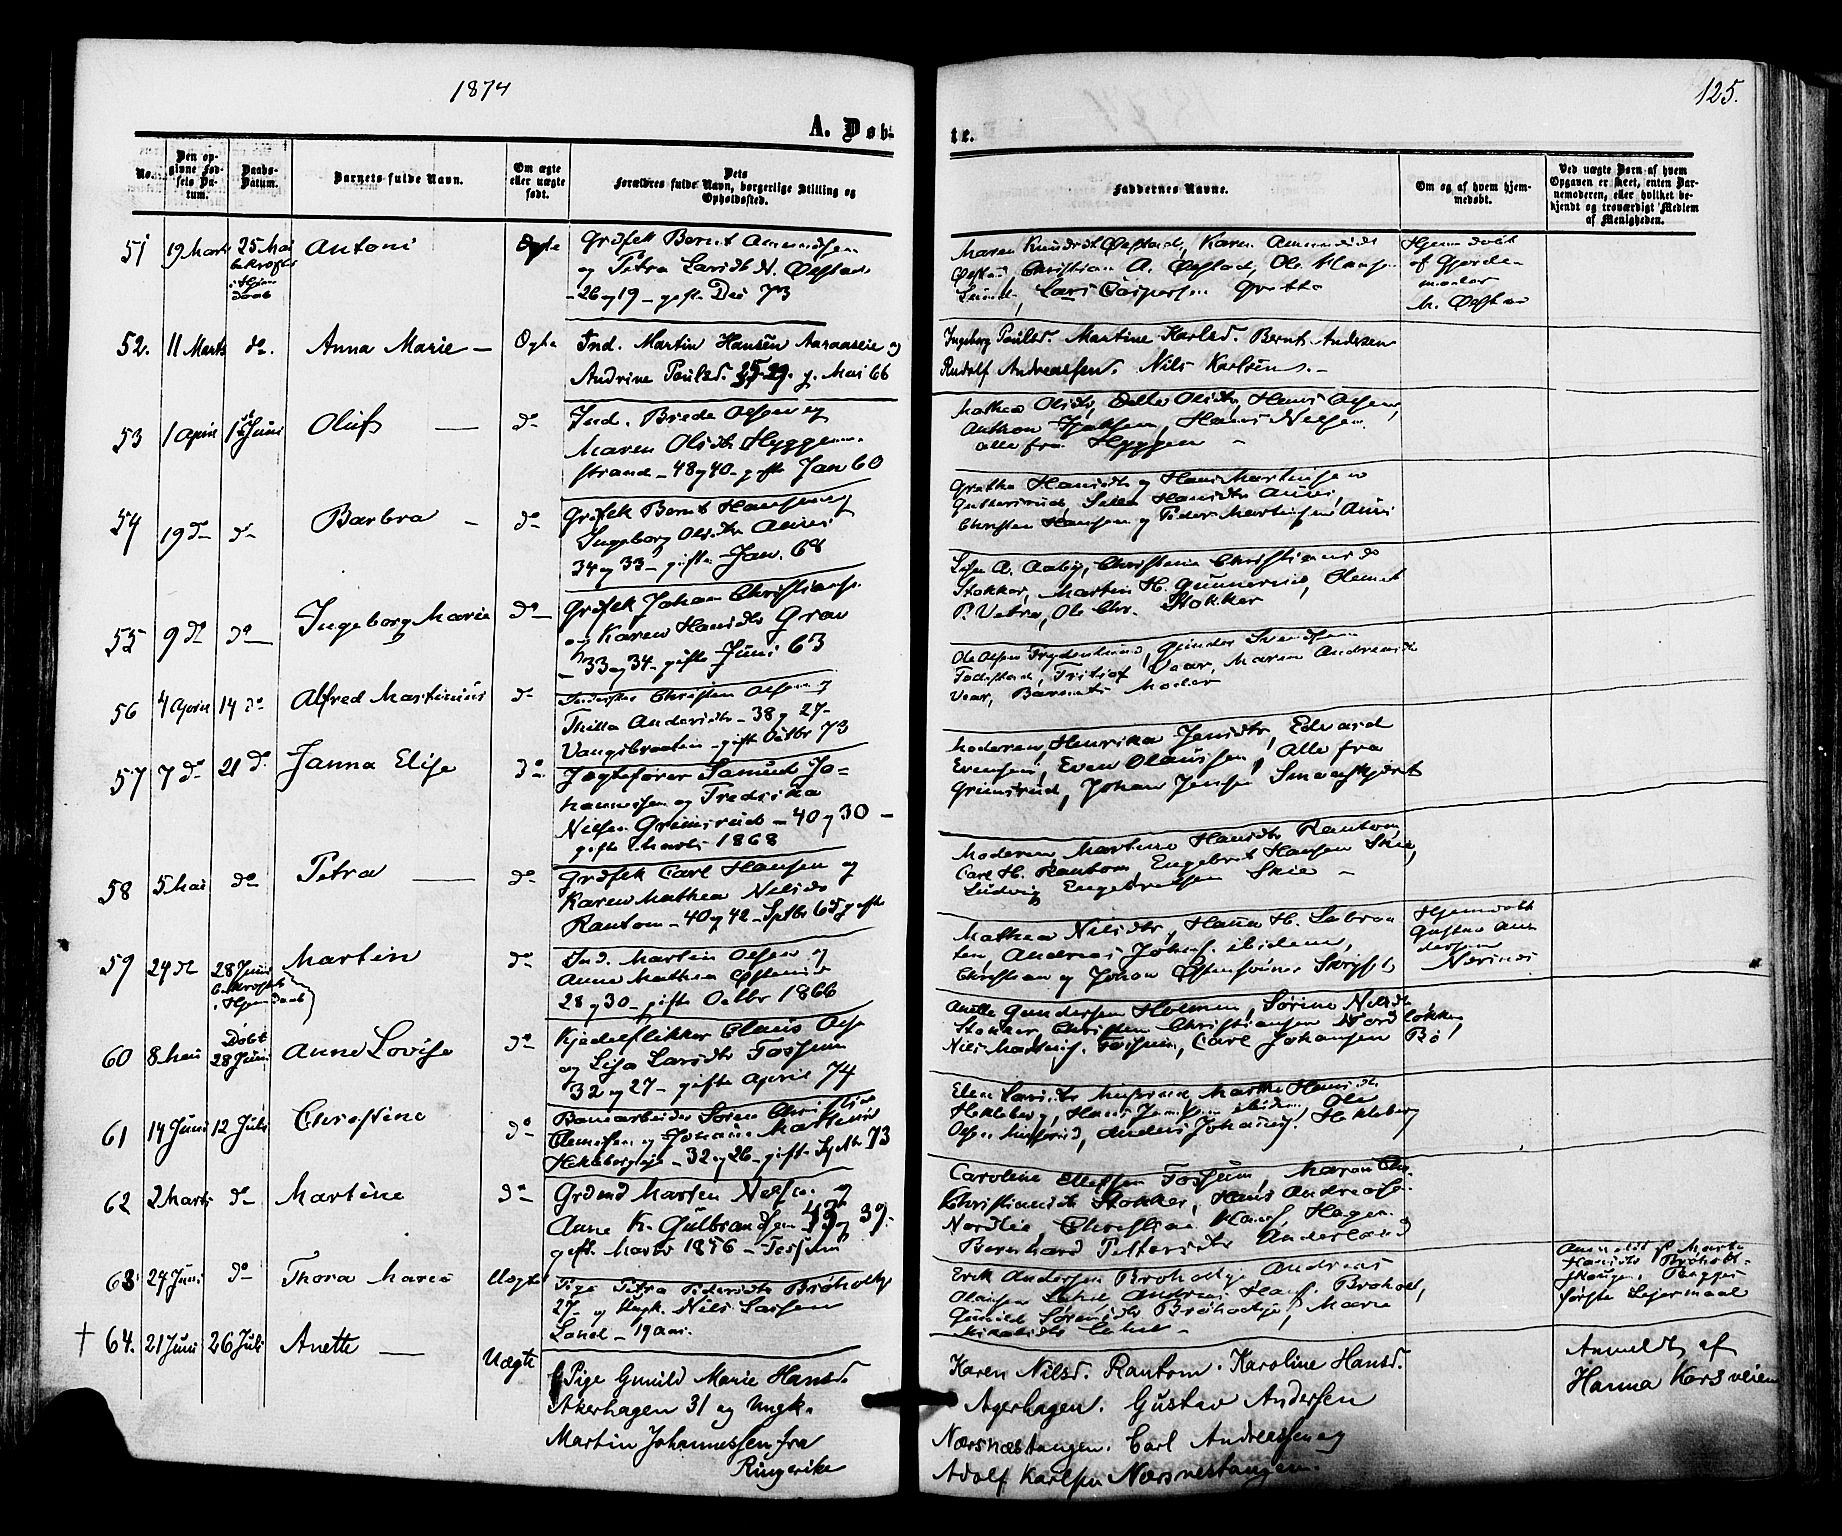 1874
125.
A. Døb-
te.
No.
Den op-
givne Fød-
sels Da-
tum.
Daabs-
Datum.
Barnets fulde Navn.
Om ægte
eller uægte
født.
Dets
Forældres fulde Navn, borgerlige Stilling og
Opholdssted.
Faddernes Navne.
Om og af hvem hjem-
medøbt.
Ved uægte Børn af hvem
Opgaven er skeet, enten Bar-
nemoderen, eller hvilket be-
kjendt og troværdigt Medlem
af Menigheden.
51 19 Marts 25 Mai Antoni Ægte
bekræftet
i Hjem
daab
Grdfck Bernt Amundsen
og Petra Larsdtr N. Øefstad
- 26 og 19 - gifte Des 73
Maren Knudsdt Øefstad, Karen Amundsdt
Øefstad, Christian A. Øefstad, Ole Hansen
Lars Caspersen Grette
Hjemdøbt
af Gjorde-
moder
M. Øefstad
52. 11 Marts do. Anna Marie - Ægte
Ind. Martin Hansen Aaraaseie og
Andrine Paulsd. 29. g. Mai 66
Ingeborg Paulsd. Martine Karlsd. Bernt Andersen
Rudolf Andreassen. Nils Karlsen. -
53 1 April 1ste Juni Oluf — do
Ind. Brede Olsen og
Maren Olsdtr Hyggen-
strand - 48 og 40 - gifte Jan 60
Mathea Olsdtr, Olsdtr, Hans Olsen,
Anthon Hans Nilsen
alle fra Hyggen -
54 19 do do Barbra - do
Grdfck Bernt Hansen og
Ingeborg Olsdtr Auni
34 og 33 - gifte Jan. 68
Grethe Hansdtr og Hans Martinsen
Hansdtr Auni,
Christen Hansen og Peder Martinsen Auni
55 9 do do Ingeborg Marie do
Grdfck Johan Christians.
og Karen Hansdtr Grav
- 33 og 34 - gifte Juni 63
A. Aaby, Christine Christiansd
Stokker, Martin H. Gunnerud,
P. Vetra, Ole Chr. Stokker
56 4 April 14 do Alfred Martinius do
Christen Olsen og
Thilla Andersdtr - 38 og 27 -
Vangsbraaten - gifte Octbr 73
Ole Olsen Frydenlund, Gunder Svendsen
Fritjof Vaar, Maren Andersdt
Vaar, Barnets Moder
57 7 do 21 do Janna Elise do
Jægtefører Samuel Jo-
hannesen og Fredrika
Nilsen Grimsrud - 40 og 30 -
gifte Marts 1868
Moderen, Henrika Jensdtr, Edvard
Evensen, Even Olaussen, Alle fra
Grimsrud, Johan Jensen
58 5 Mai do Petra — do
Grdfck Carl Hansen og
Karen Mathea Nilsdt
Rantom - 40 og 42 - Sptbr 65 gifte
Moderen, Martine Hansdtr Rantom,
Carl H. Rantom, Engebret Hansen Skie,
Ludvig Engebretsen Skie -
59 24 do 28 Juni Martin do
bekræftet
i Hjemdaab
Ind. Martin Olsen og
Anne Mathea
28 og 30 - gifte Octbr 1866
Mathea Nilsdtr, Hans H.
Andreas Johns. ibidem,
Christian og Johan
Hjemdøbt
Gustav An-
dersen
Nærsnes
60 8 Mai Døbt 28 Juni Anne Lovise do
Kjedelflikker Claus Olsen
og Lisa Larsdtr Fossum
32 og 27 - gifte April 74
Anette Gundersen Holmen, Sørine Nilsdt
Stokker, Christen Christiansen Nordløkken,
Nils Fossum, Carl Johansen Bø
61 14 Juni 12 Juli Christine do
Banearbeider Søren Christian
Clemetsen og Johanne
Heklebergeie - 32 og 26 - gifte 73
Elen Larsdtr Marthe Hansdt
Hekleberg, Hans ibidem, Ole
Olsen Anders Johansen Hekleberg
62 2 Marts do Martine do
Grdmd Morten Nilsen og
Anne K. Gulbrandsen og 39.
gifte Marts 1856 - Fossum
Caroline Fossum, Maren
Christiansdt Stokker, Hans Andreasen
Nordlie, Christian Hans. Hagen
Bernhard Pettersdtr
63 24 Juni do Thora Marie Uægte
Pige Petra Pedersdtr Brøholt
27 og Ungk. Nils Larsen
Lund - 19 Aar.
Erik Andersen Andreas
Olausen Andreas Hans. Brøholt,
Gunild Sørensdtr Marie
Anmeldt af Marte
Hansdtr Brøholt-
haugen, Begges
første Leiermaal
† 64. 21 Juni 26 Juli Anette — Uægte
Pige Gunild Marie Hansd.
Akerhagen 31 og Ungk.
Martin Johannessen fra
Ringerike
Karen Nilsd. Rantom. Karoline Hansd.
Agerhagen. Gustav Andersen
Nærsnæstangen. Carl Andreassen og
Adolf Karlsen Nærsnestangen.
Anmeldt af
Hanna Korsveien